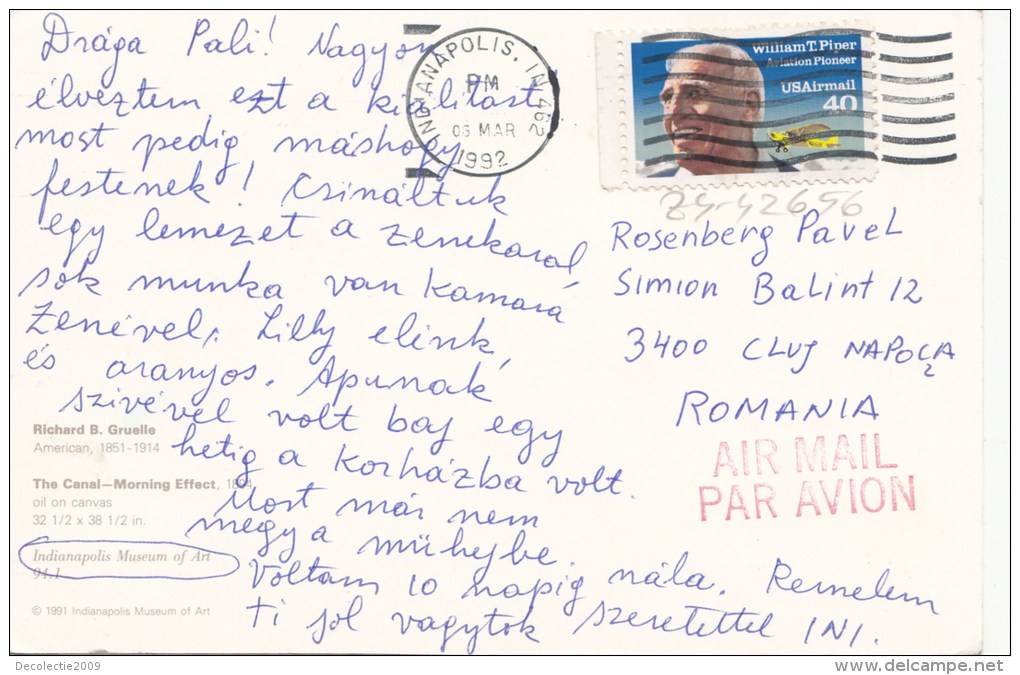 Drága Pali! Nagyon
élveztem ezt a kiálitást
most pedig máshogy
festenek! Csináltuk
egy lemezet a zenekaral,
sok munka van kamará
Zenével. Lilly elénk,
és aranyos. Apunak
szivével volt baj egy
hetig a Korházba volt.
Most már nem
megy a mühejbe.
Voltam 10 napig nála. Remelem
Ti jol vagytok szeretettel INI.
INDIANAPOLIS, IN 462
PM
06 MAR
1992
William T. Piper
Aviation Pioneer
USAirmail
40
Z4-42656
Rosenberg Pavel
Simion Balint 12
3400 CLUJ NAPOCA
2
ROMANIA
AIR MAIL
PAR AVION
Richard B. Gruelle
American, 1851-1914
The Canal—Morning Effect, 1894
oil on canvas
32 1/2 x 38 1/2 in.
Indianapolis Museum of Art
94.1
© 1991 Indianapolis Museum of Art
Decolectie2009
www.delcampe.net